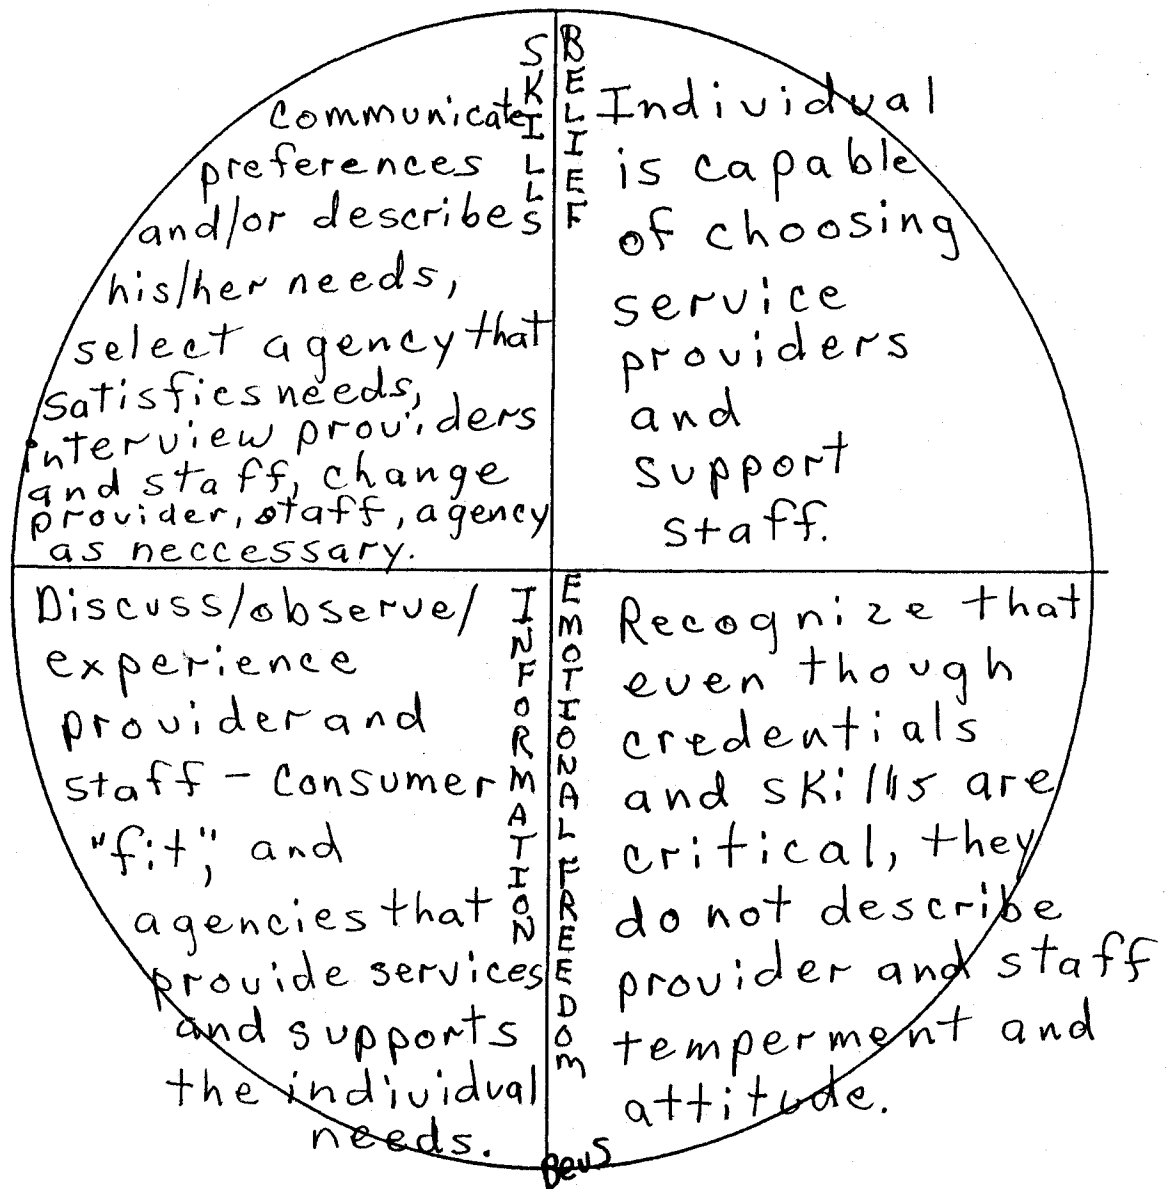 SKILLS
communicate
preferences
and/or describes
his/her needs,
select agency that
satisfies needs,
interview providers
and staff, change
provider, staff, agency
as neccessary.
BELIEF
Individual
is capable
of choosing
service
providers
and
support
staff.
INFORMATION
Discuss/observe/
experience
provider and
staff - consumer
"fit", and
agencies that
provide services
and supports
the individual
needs.
EMOTIONAL FREEDOM
Recognize that
even though
credentials
and skills are
critical, they
do not describe
provider and staff
temperment and
attitude.